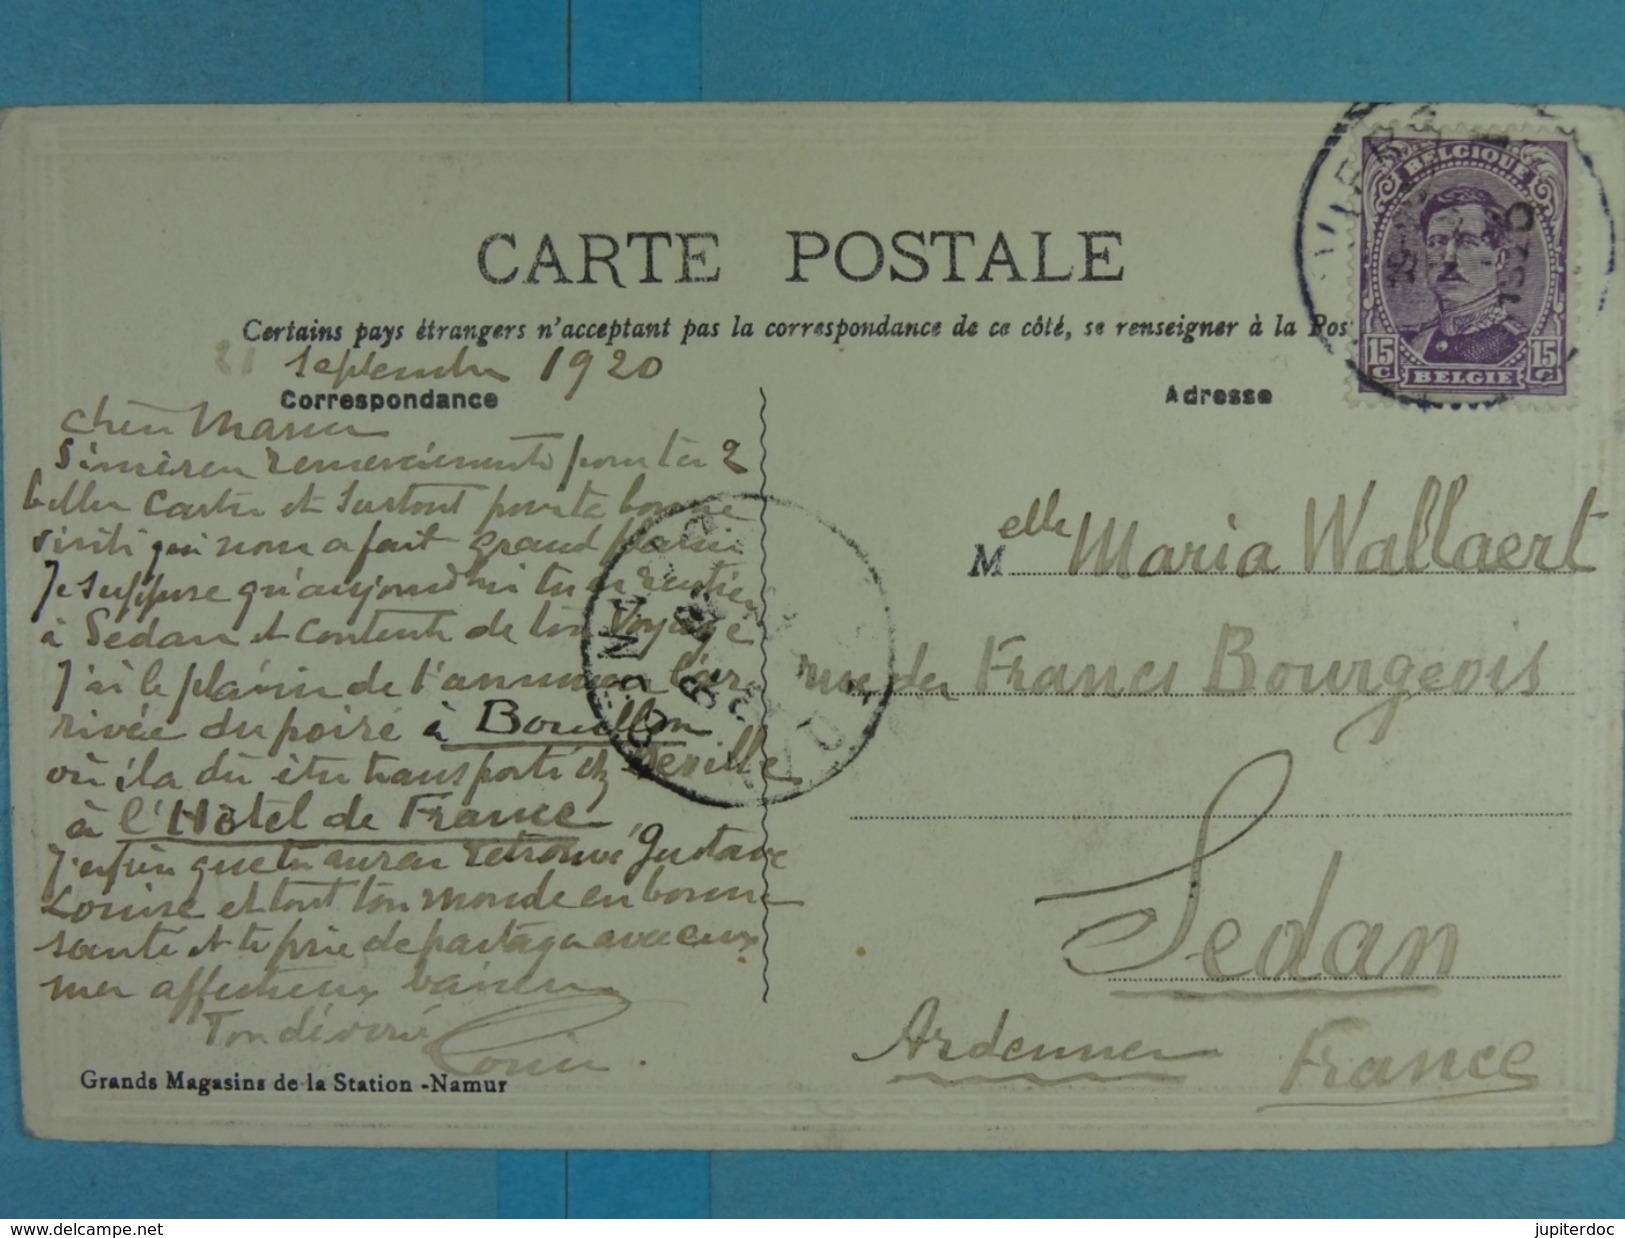 CARTE POSTALE
Certains pays étrangers n'acceptant pas la correspondance de ce côté, se renseigner à la Pos
21 Septembre 1920
Correspondance
Adresse
BELGIQUE
15 c 15 c
BELGIE
1920
Sincères remerciements pour tes 2
belles cartes et surtout pour ta bonne
visite qui nous a fait grand plaisir
Je suppose qu'aujourd'hui tu es
à Sedan et contente de ton voyage
J'ai le plaisir de t'annoncer l'ar
rivée du poiré à Bouillon
où il a dû être transporté chez Deville
à l'Hôtel de France
J'espère que tu auras retrouvé Gustave
Louise et tout ton monde en bonne
santé et te prie de partager avec eux
mes affectueux baisers
Ton dévoué
Melle Maria Wallaert
rue des Francs Bourgeois
Sedan
Ardennes
France
Grands Magasins de la Station - Namur
www.delcampe.net
jupiterdoc